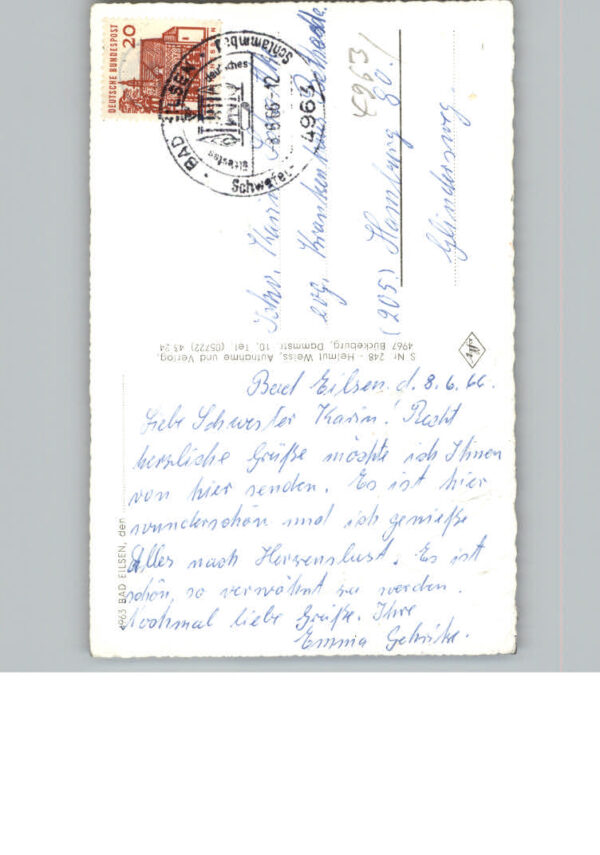 DEUTSCHE BUNDESPOST
20
BAD EILSEN
Schlammbad
deutsches
ältestes
8.6.66-12
4963
Schwefel-
4963
Schw. Karin
evg. Krankenhaus
(205) Hamburg 80.
Glindersweg
S Nr. 248 - Helmut Weiss, Aufnahme und Verlag,
4967 Bückeburg, Dammstr. 10, Tel. (05722) 43 24
4963 BAD EILSEN, den
Bad Eilsen d. 8.6.66.
Liebe Schwester Karin! Recht
herzliche Grüße möchte ich Ihnen
von hier senden. Es ist hier
wunderschön und ich genieße
Alles nach Herzenslust. Es ist
schön, so verwöhnt zu werden.
Nochmal liebe Grüße. Ihre
Emma